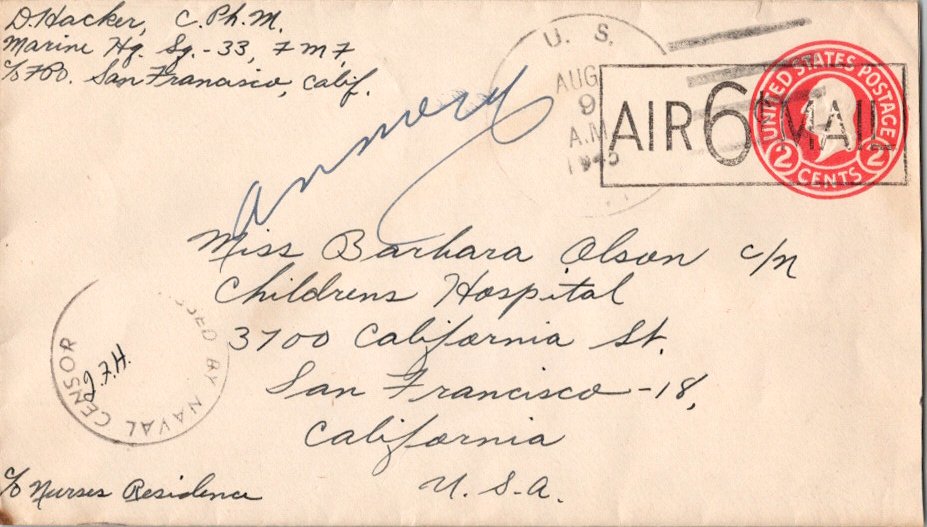 D. Hacker, C. Ph. M.
Marine Hq. Sq. - 33, FMF,
c/o FPO. San Francisco, Calif.
U. S.
AUG
9
A.M
1945
AIR 6¢ MAIL
UNITED STATES POSTAGE
2 CENTS 2
Miss Barbara Olson c/n
Childrens Hospital
3700 California St.
San Francisco - 18,
California
U. S. A.
SED BY NAVAL CENSOR
c/o Nurses Residence